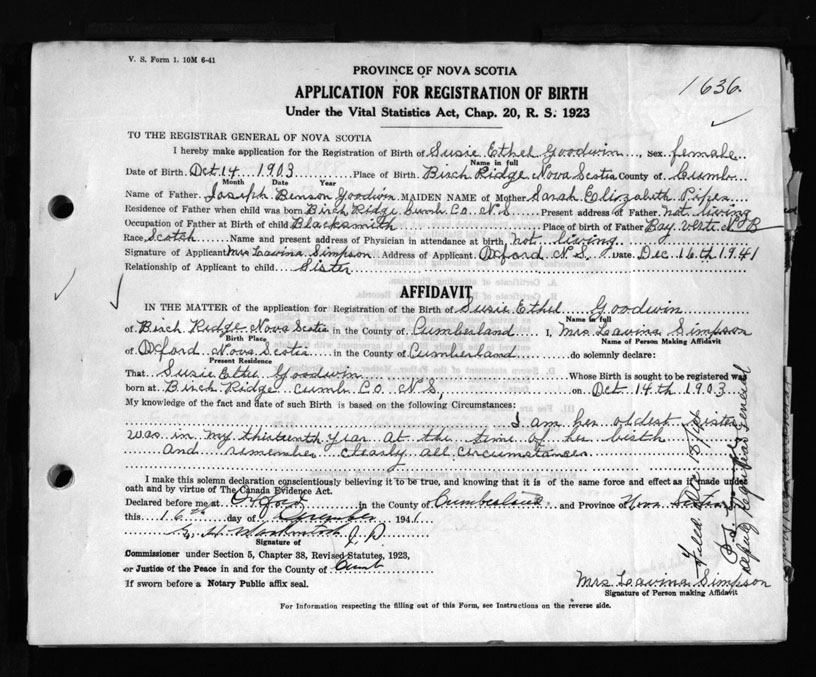 V. S. Form 1. 10M 6-41
PROVINCE OF NOVA SCOTIA
1636.
APPLICATION FOR REGISTRATION OF BIRTH
Under the Vital Statistics Act, Chap. 20, R. S. 1923
TO THE REGISTRAR GENERAL OF NOVA SCOTIA
I hereby make application for the Registration of Birth of Susie Ethel Goodwin, Sex female
Name in full
Date of Birth Oct 14 1903 Place of Birth Birch Ridge Nova Scotia County of Cumb.
Month Date Year
Name of Father Joseph Benson Goodwin MAIDEN NAME of Mother Sarah Elizabeth Pipes
Residence of Father when child was born Birch Ridge Cumb. Co. N.S. Present address of Father not living
Occupation of Father at Birth of child Blacksmith Place of birth of Father Bay Verte N B
Race Scotch Name and present address of Physician in attendance at birth not living
Signature of Applicant Mrs Lavina Simpson Address of Applicant Oxford N.S. Date Dec. 16th 1941
Relationship of Applicant to child Sister
AFFIDAVIT
IN THE MATTER of the application for Registration of the Birth of Susie Ethel Goodwin
Name in full
of Birch Ridge Nova Scotia in the County of Cumberland I, Mrs Lavina Simpson
Birth Place Name of Person Making Affidavit
of Oxford Nova Scotia in the County of Cumberland do solemnly declare:
Present Residence
That Susie Ethel Goodwin Whose Birth is sought to be registered was
born at Birch Ridge Cumb. Co. N.S. on Oct 14th 1903
My knowledge of the fact and date of such Birth is based on the following Circumstances:
I am her oldest sister
was in my thirteenth year at the time of her birth
and remember clearly all circumstances
I make this solemn declaration conscientiously believing it to be true, and knowing that it is of the same force and effect as if made under
oath and by virtue of The Canada Evidence Act.
Declared before me at Oxford in the County of Cumberland and Province of Nova Scotia
this 16th day of December 1941
J.P.
Signature of
Commissioner under Section 5, Chapter 38, Revised Statutes, 1923,
or Justice of the Peace in and for the County of Cumb
If sworn before a Notary Public affix seal.
Mrs Lavina Simpson
Signature of Person making Affidavit
For Information respecting the filling out of this Form, see Instructions on the reverse side.
Filed Dec
Deputy Registrar General